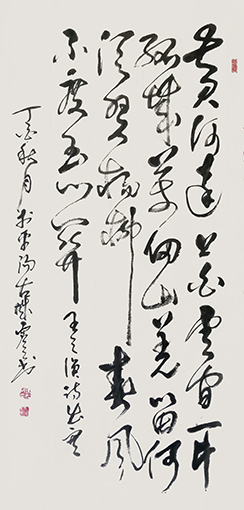 黄河远上白云间一片
孤城万仞山羌笛何
须怨杨柳春风
不度玉门关王之涣诗出塞
丁酉秋月于平阳古城